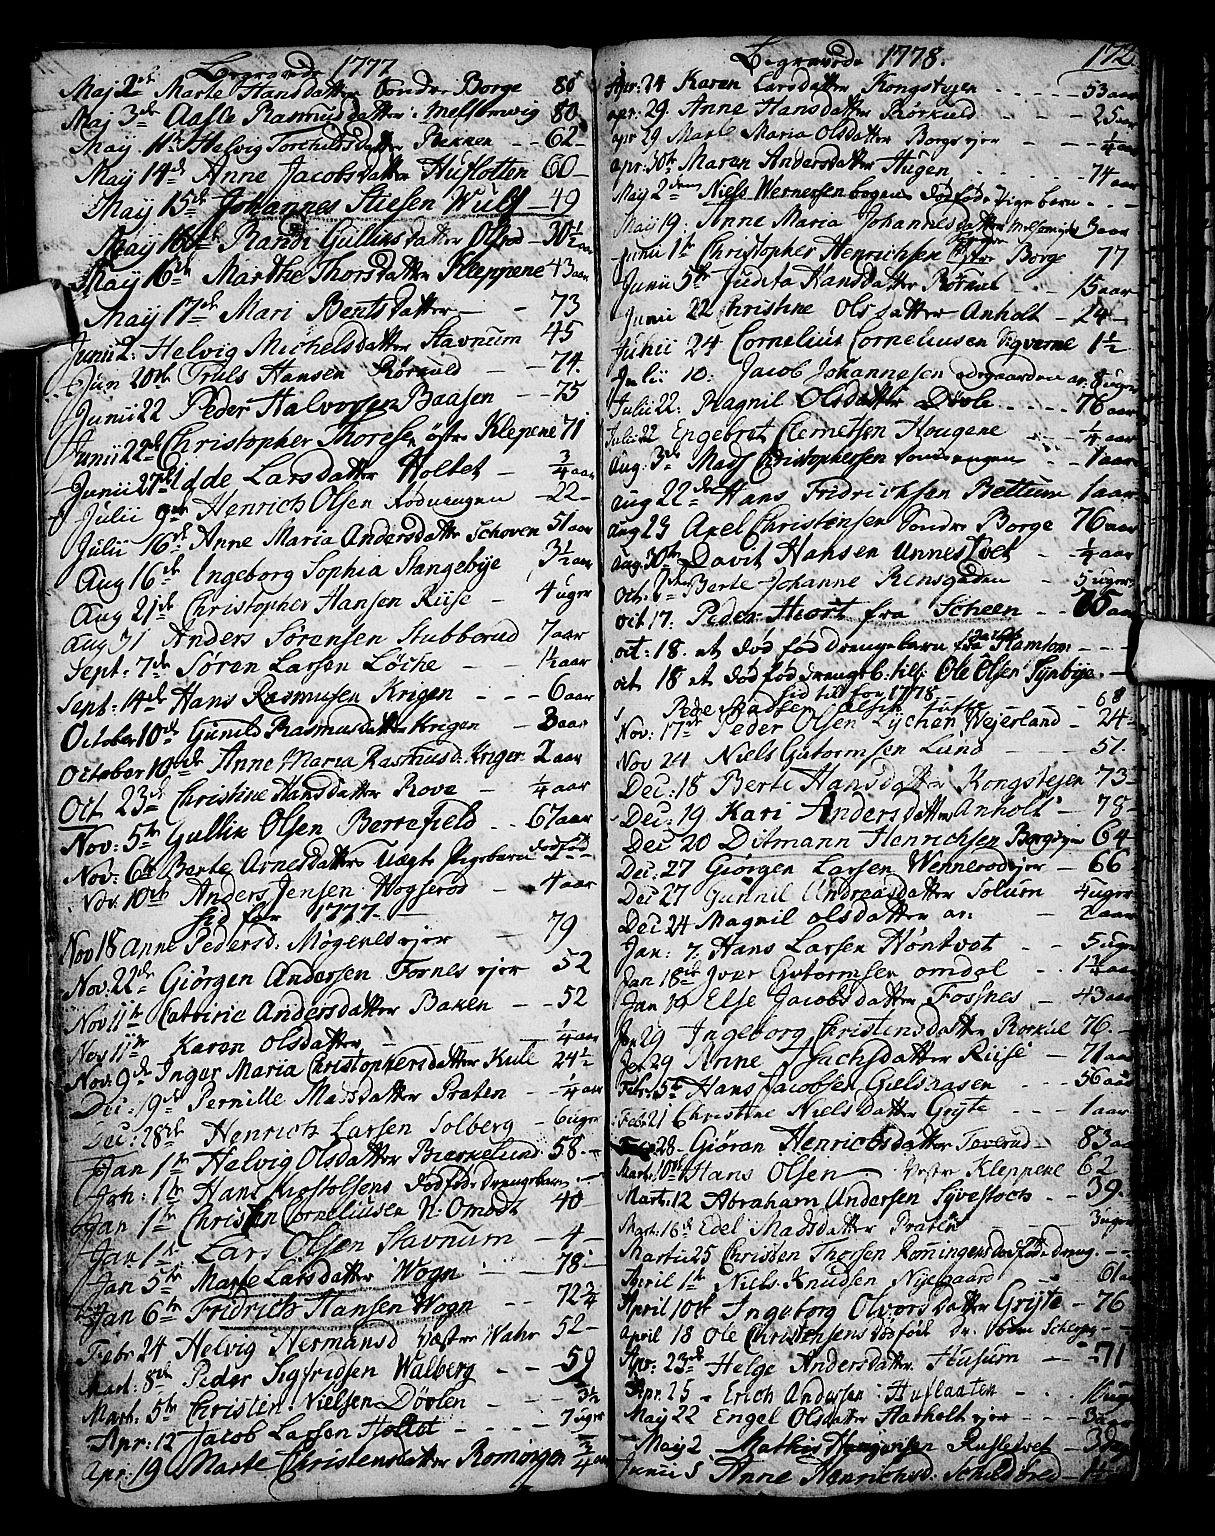 Begravede 1777
Maj 2de Marte Hansdatter Søndre Borge 80
Maj 3de Aasle Rasmusdatter i Mellemvig 80
Maij 11te Helvig Torchildsdatter Bakken - - 62 -
Maij 14de Anne Jacobsdatter Huslotten 60 -
Maij 15de Johannes Stiesen Wulf - 49
Maij 16de Randi Gulliksdatter - 30 1/2 aar
Maij 16de Marthe Thorsdatter Kleppene 43 aar
Maij 17de Mari Bentsdatter - - 73
Junii 2: Helvig Michelsdatter Stavnum 45
Jun 20de Truls Hansen Rørkuld - - 74.
Junii 22 Peder Halvorsen Baasen - - 75
Junii 22de Christopher Thoresen østre Klepene 71
Junii 27de Larsdatter Holtet - 3/4 aar
Julii 9de Henrich Olsen Rødvangen - 22 -
Julii 16de Anne Maria Andersdatter Schoven 51 aar
Aug 16de Ingeborg Sophia Slangebye 3 1/2 aar
Aug 21de Christopher Hansen Riise - 4 uger
Aug 31 Anders Sørensen Stubberud 7 aar
Sept: 7de Søren Larsen Løcke - - 1 1/2 aar
Sept: 14de Hans Rasmusen Krigen - - - 6 aar
October 10de Gunild Rasmusdatter Krigen - 8 aar
October 10de Anne Maria Rasmusd: Kriger 2 aar
Oct 23de Christine Hansdatter Rove - 1/4 aar
Nov: 5te Gullik Olsen Berrefield - - 67 aar
Nov: 6te Berte Arnesdatter Pigebarn dødfød
Nov: 10de Anders Jensen Wogserød - 4 aar
Lid for 1777 -
Nov 18 Anne Pedersd: Møgenes ejer - 79
Nov: 22de Giørgen Andersen Fornes ejer 52
Nov 11te Catrine Andersdatter Baken - - 52
Nov 11te Karen Olsdatter - - 1/4 aar
Nov: 9de Inger Maria Christophersdatter Kule 24 1/2
Dec: 19de Pernille Madsdatter Praten - 1/4 aar
Dec: 28de Henrich Larsen Solberg - 6 uger
Jan 1te Helvig Olsdatter Bierkelund 58 -
Jan: 1te Hans Apostolsens Dødføde Drengebarn -
Jan 1te Christen Corneliusen N: Omodt 40
Jan 1te Lars Olsen Stavnum - 4 -
Jan 5te Marte Larsdatter Wogn - - 78
Jan 6te Fridrich Hansen Wogn - - 72 3/4
Febr 24 Helvig Hermansd Væstre Wahr 52 -
Mart: 8de Peder Sigfridsen Walberg - - 59
Mart: 5te Christen Nielsen Døvlen - - 3 1/2
Apr: 12 Jacob Larsen Holtet - - - 7 uger
Apr: 19 Marte Christensdatter Romorgen 3/4 aar
Begravede 1778. 172
Apr: 24 Karen Larsdatter Kongstegen - - - - 53 aar
apr: 29. Anne Hansdatter Rørkuld - - - 25 aar
apr 29 Marte Maria Olsdatter Borge ejer - - - 1/4 aar
apr: 30te Maren Andersdatter Haugen - - - - 74 aar
May 2den Niels Wernersen bogens dødføde Pige barn - - -
May 19. Anne Maria Johannesdatter Mellemvig 3 aar
Junii 1te Christopher Henrichsen Østre Borge 77
Junii 5te Hansdatter Rørkuld - - 15 aar
Junii 22 Christine Olsdatter Anholt - 24 -
Junii 24 Cornelius Corneliusen Vigverne 1 1/2
Julii 10: Jacob Johannesen ødegaarden ar. 8 uger
Julii 22: Ragnil Olsdatter Døvle - - - 76 aar
Julii 22 Engebret Clemetsen Haugene 1/4 aar
Aug: 3de Mads Christophersen 1 aar
aug 22de Hans Fridrichsen Bettum 1 aar
aug 23 Axel Christensen Søndre Borge 76 aar
aug: 30te Davit Hansen Unnestvet - 1/4 aar
Oct: Berte Johanne Rensgaden - 5 uger
oct 17. Peder Hiort fra Scheen - - 75 aar
oct: 18. et død fød Drengebarn fra Hamton - - -
oct 18 et død fød drengeb: till: Ole Olsen Tynbye. -
Lid til for 1778 -
68
Nov: 17de Peder Olsen Lychen Wejerland - 24 -
Nov 24 Niels Gutormsen Lund - - - 51.
Dec: 18 Berte Hansdatter Kongstegen 73
Dec: 19 Kari Andersdatter Anholt - 78 -
Dec 20 Ditmann Henrichsen Borge 64
Dec. 27 Giørgen Larsen Wennerød ejer - 66
Dec 27 Gunnil Andreasdatter Solum 4 uger
Dec 24 Magnil Olsdatter - 2 aar
Jan: 7. Hans Larsen Høntvet - - 5 uger
Jan 18de Iver Gutormsen Omdal - - 1 3/4 aar
Jan 19 Else Jacobsdatter Fossnes - 43 aar
Jan 29 Ingeborg Christensdatter Rørkul 76. -
Jan 29 Anne Isachsdatter Riise - 71 aar
Febr: 5te Hans Jacobsen Gielshasen - 56 aar
Feb: 21 Christine Nielsdatter Gryte - - - 1 aar
28 - Giøran Henrichsdatter Toverud - 83 aar
Mart: 10de Hans Olsen - Vestre Kleppene 62
Mart: 12 Abraham Andersen Syvestoch - - 39.
Mart: 16de Edel Madsdatter Praten - 3 uger
Martii 25 Christen Thorsen Rønningens dødføde dreng. - -
April 1te Niels Knudsen Nyegaard - 61 aar
April 10de Ingeborg Olvorsdatter Gryte - 76
April 18 Ole Christensens dødfød Dr:
Apr: 23de Helge Andersdatter Husum - - 71
Apr: 25 - Erich Andersen Huslaaten - - uger
May 22 Engel Olsdatter Aarholt ejer - - - 3 aar
May 2 Mathis Haagensen Rusletvet - 3 dage
Junii 5 Anne Henrichsd: Schildbred -